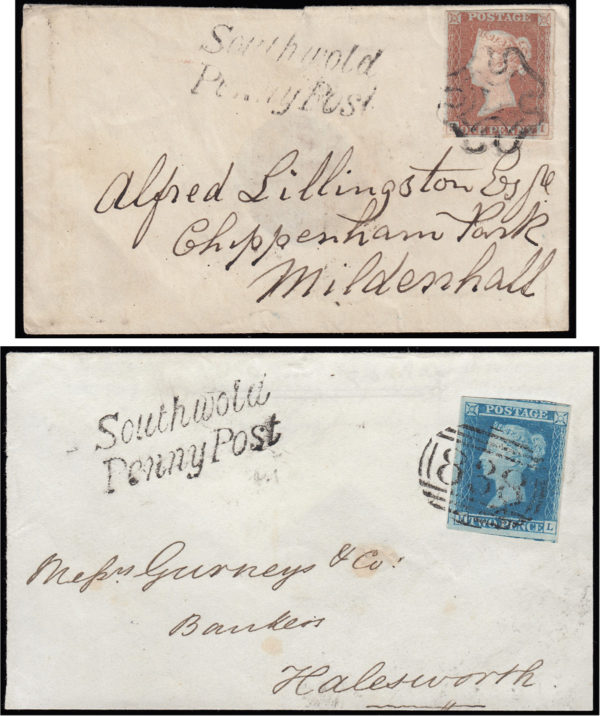 Southwold
Penny Post
POSTAGE
Alfred Lillingston Esqre
Chippenham Park
Mildenhall
Southwold
Penny Post
POSTAGE
838
TWO PENCE L
Messrs Gurneys & Co.
Bankers
Halesworth.